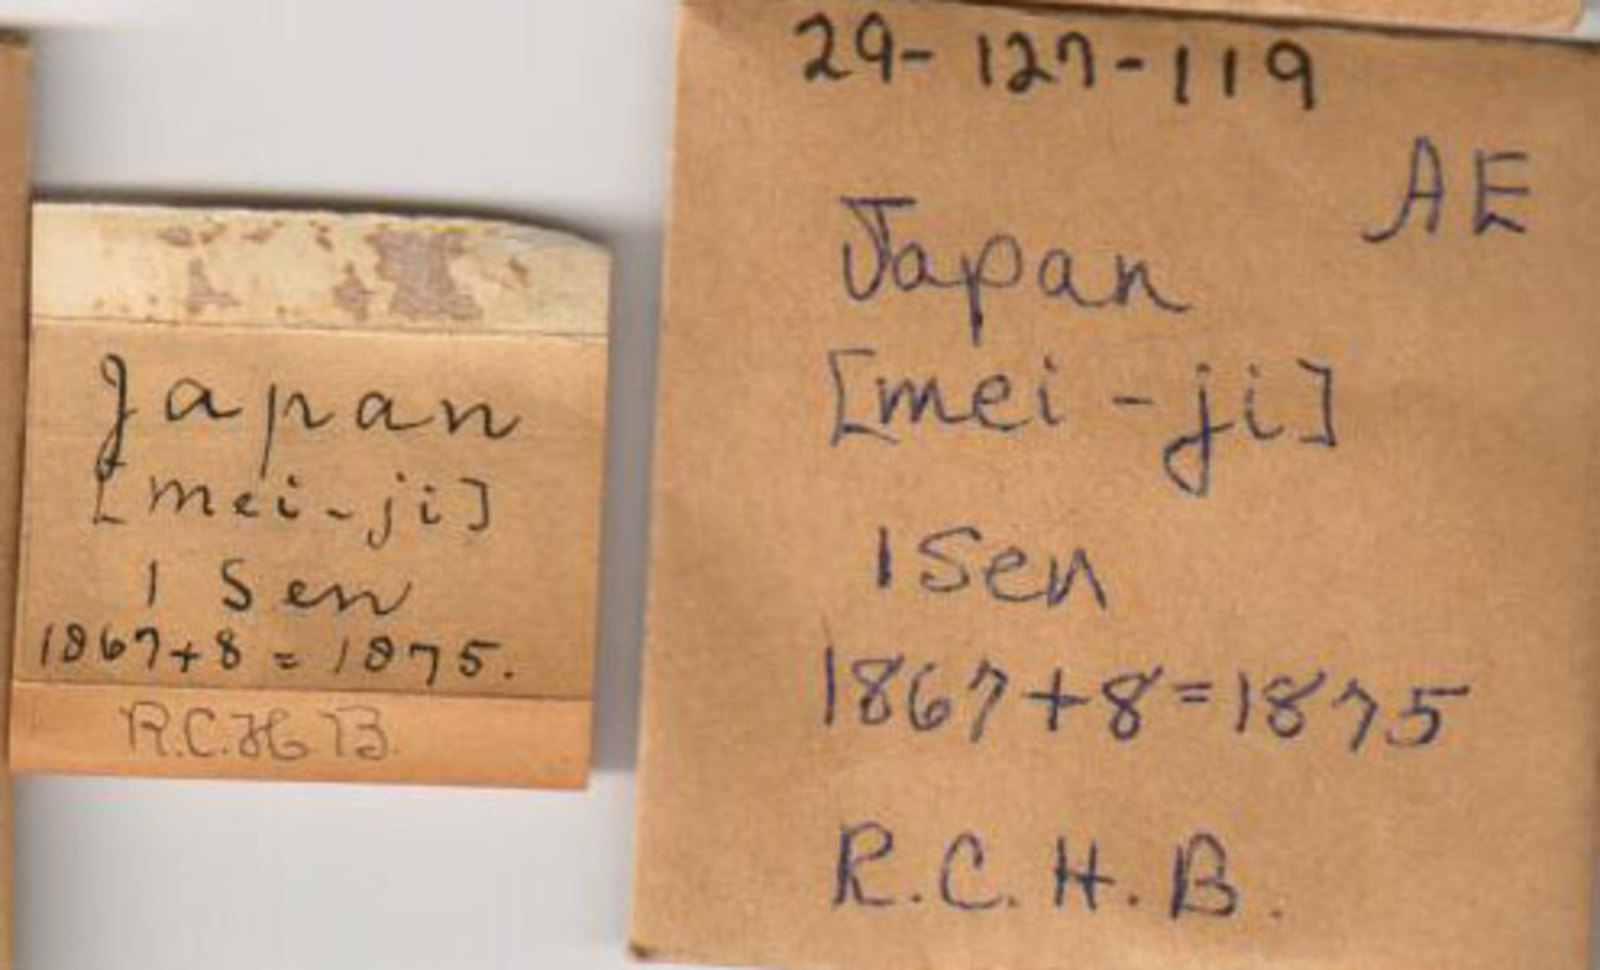 Japan
[mei-ji]
1 Sen
1867+8=1875.
R.C.H.B.
29-127-119
AE
Japan
[mei-ji]
1 Sen
1867+8=1875
R.C.H.B.